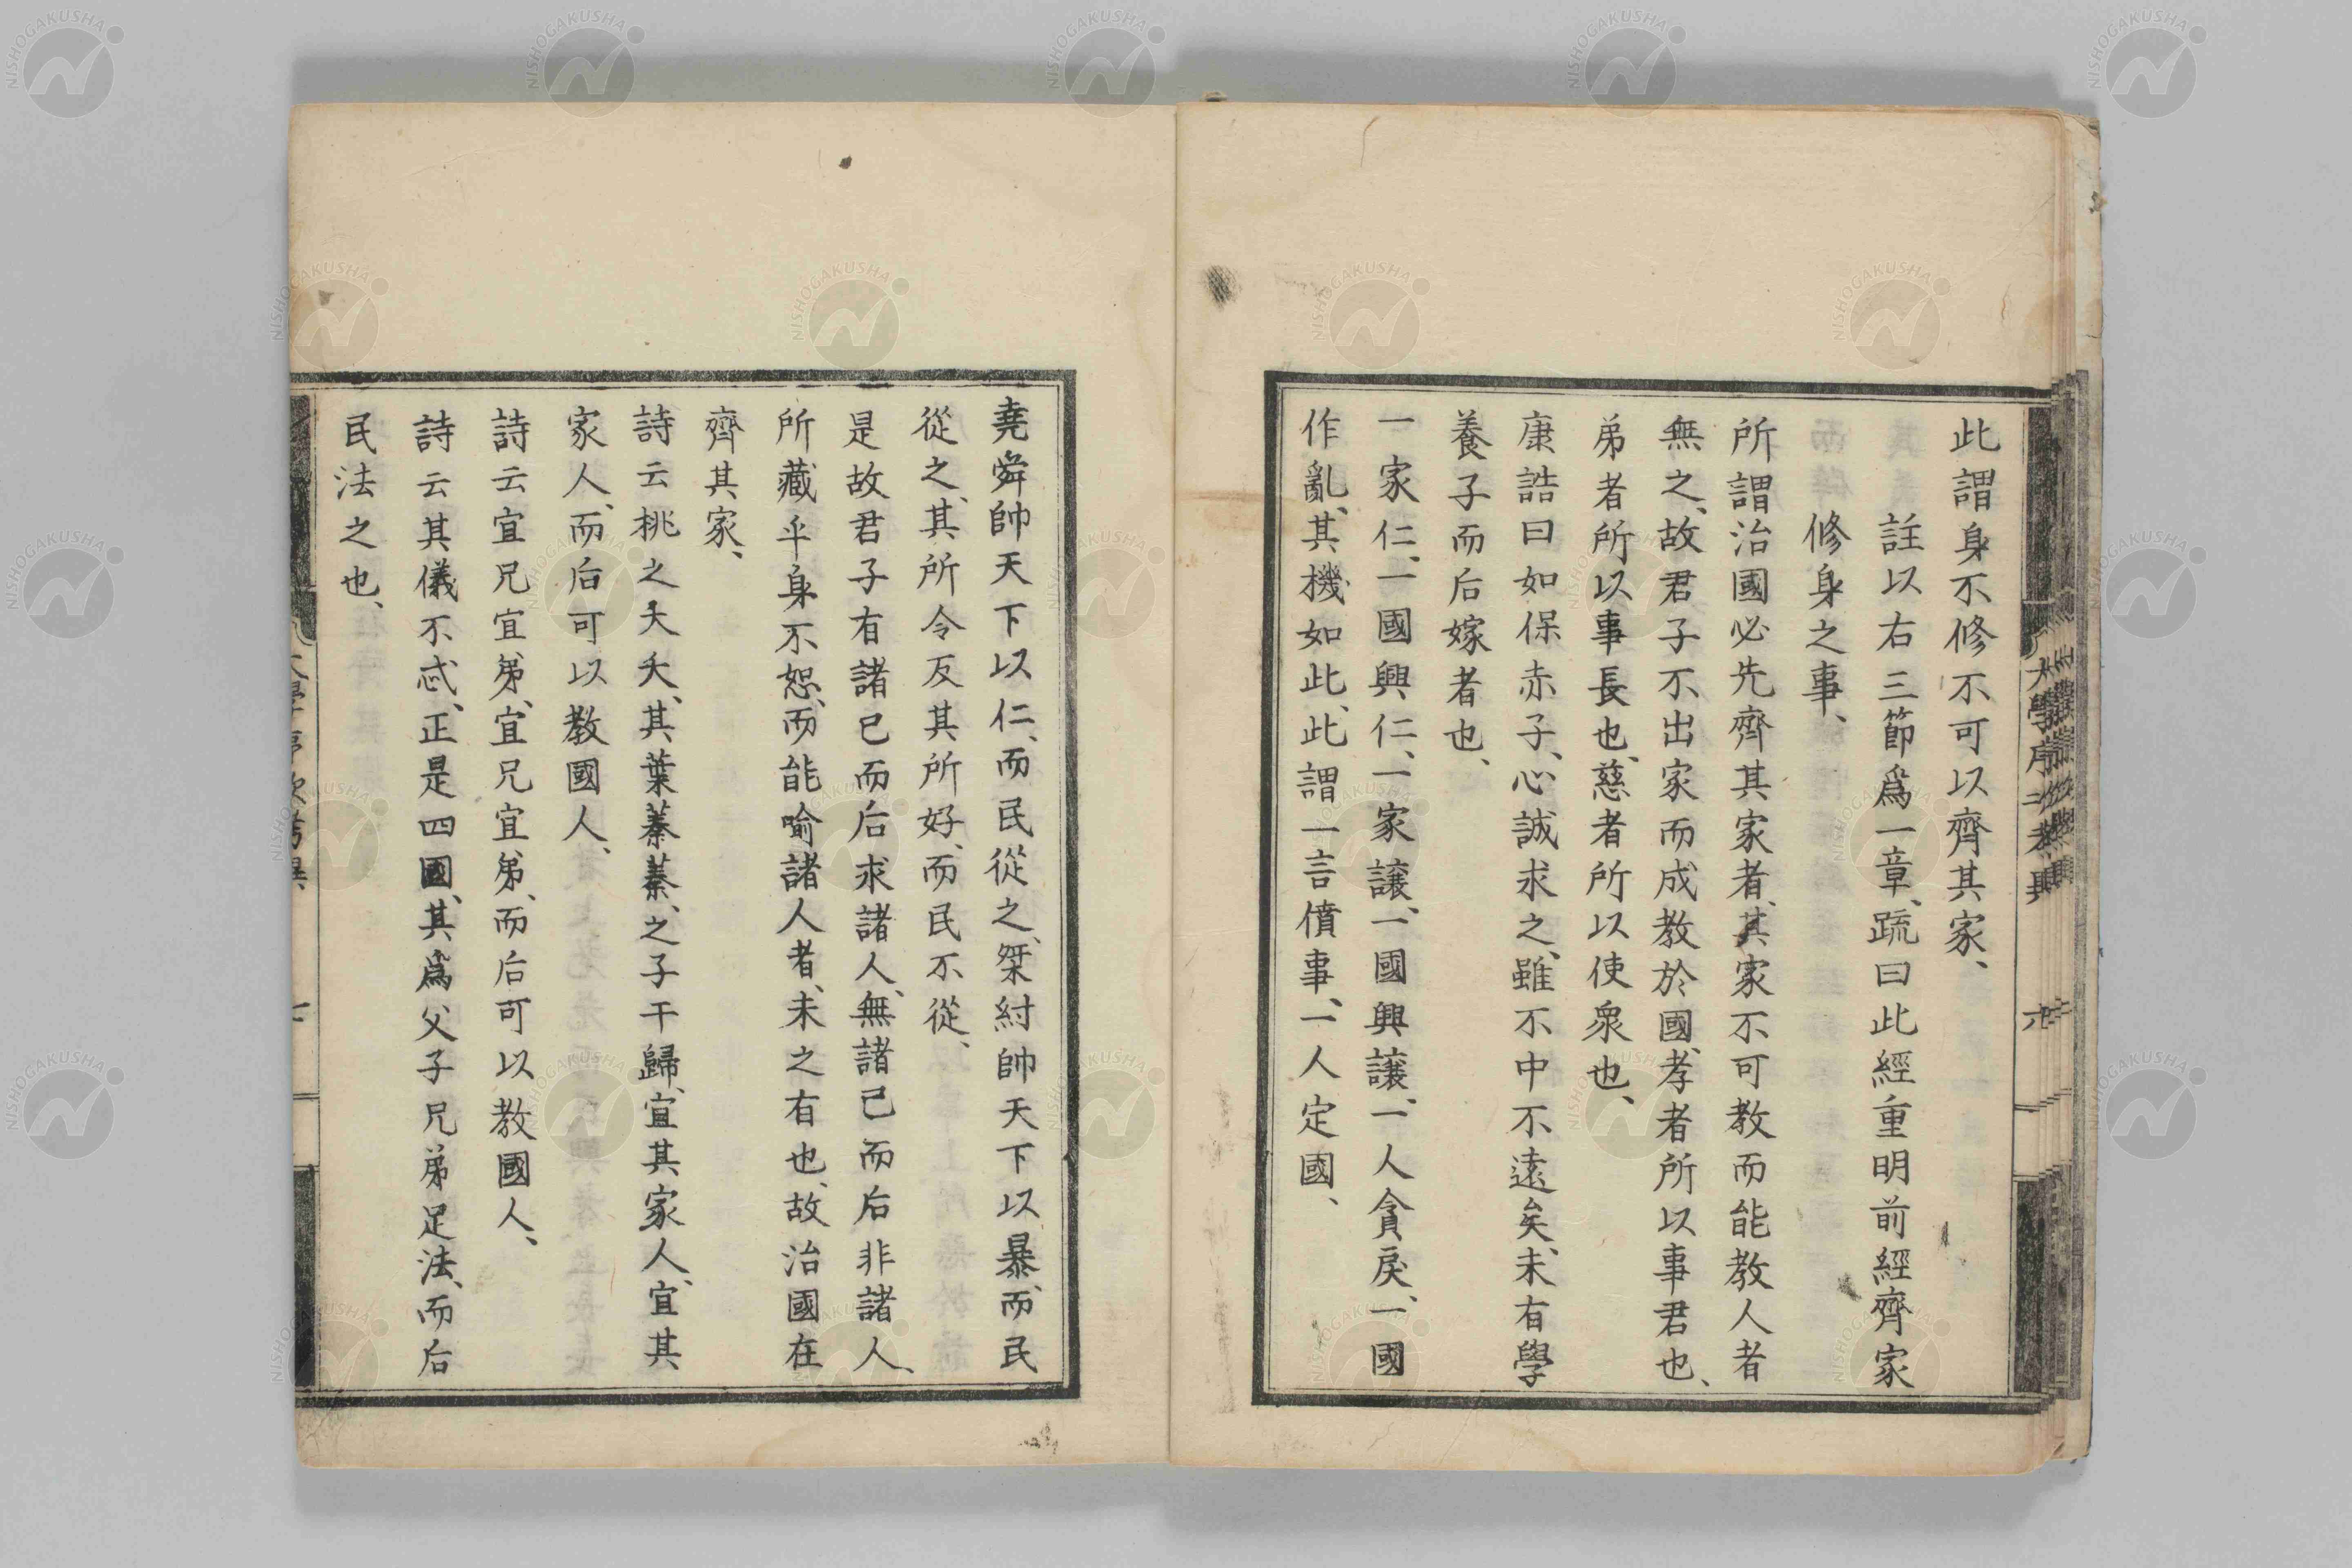 此謂身不修不可以齊其家、
註以右三節爲一章、疏曰此經重明前經齊家
修身之事、
所謂治國必先齊其家者、其家不可教而能教人者
無之、故君子不出家而成教於國、孝者所以事君也、
弟者所以事長也、慈者所以使衆也、
康誥曰如保赤子、心誠求之、雖不中不遠矣、未有學
養子而后嫁者也、
一家仁、一國興仁、一家讓、一國興讓、一人貪戾、一國
作亂、其機如此、此謂一言僨事、一人定國、
大學序次考異
六
堯舜帥天下以仁、而民從之、桀紂帥天下以暴、而民
從之、其所令反其所好、而民不從、
是故君子有諸己而后求諸人、無諸己而后非諸人、
所藏乎身不恕、而能喻諸人者、未之有也、故治國在
齊其家、
詩云桃之夭夭、其葉蓁蓁、之子于歸、宜其家人、宜其
家人、而后可以教國人、
詩云宜兄宜弟、宜兄宜弟、而后可以教國人、
詩云其儀不忒、正是四國、其爲父子兄弟足法、而后
民法之也、
大學序次考異
七
NISHOGAKUSHA